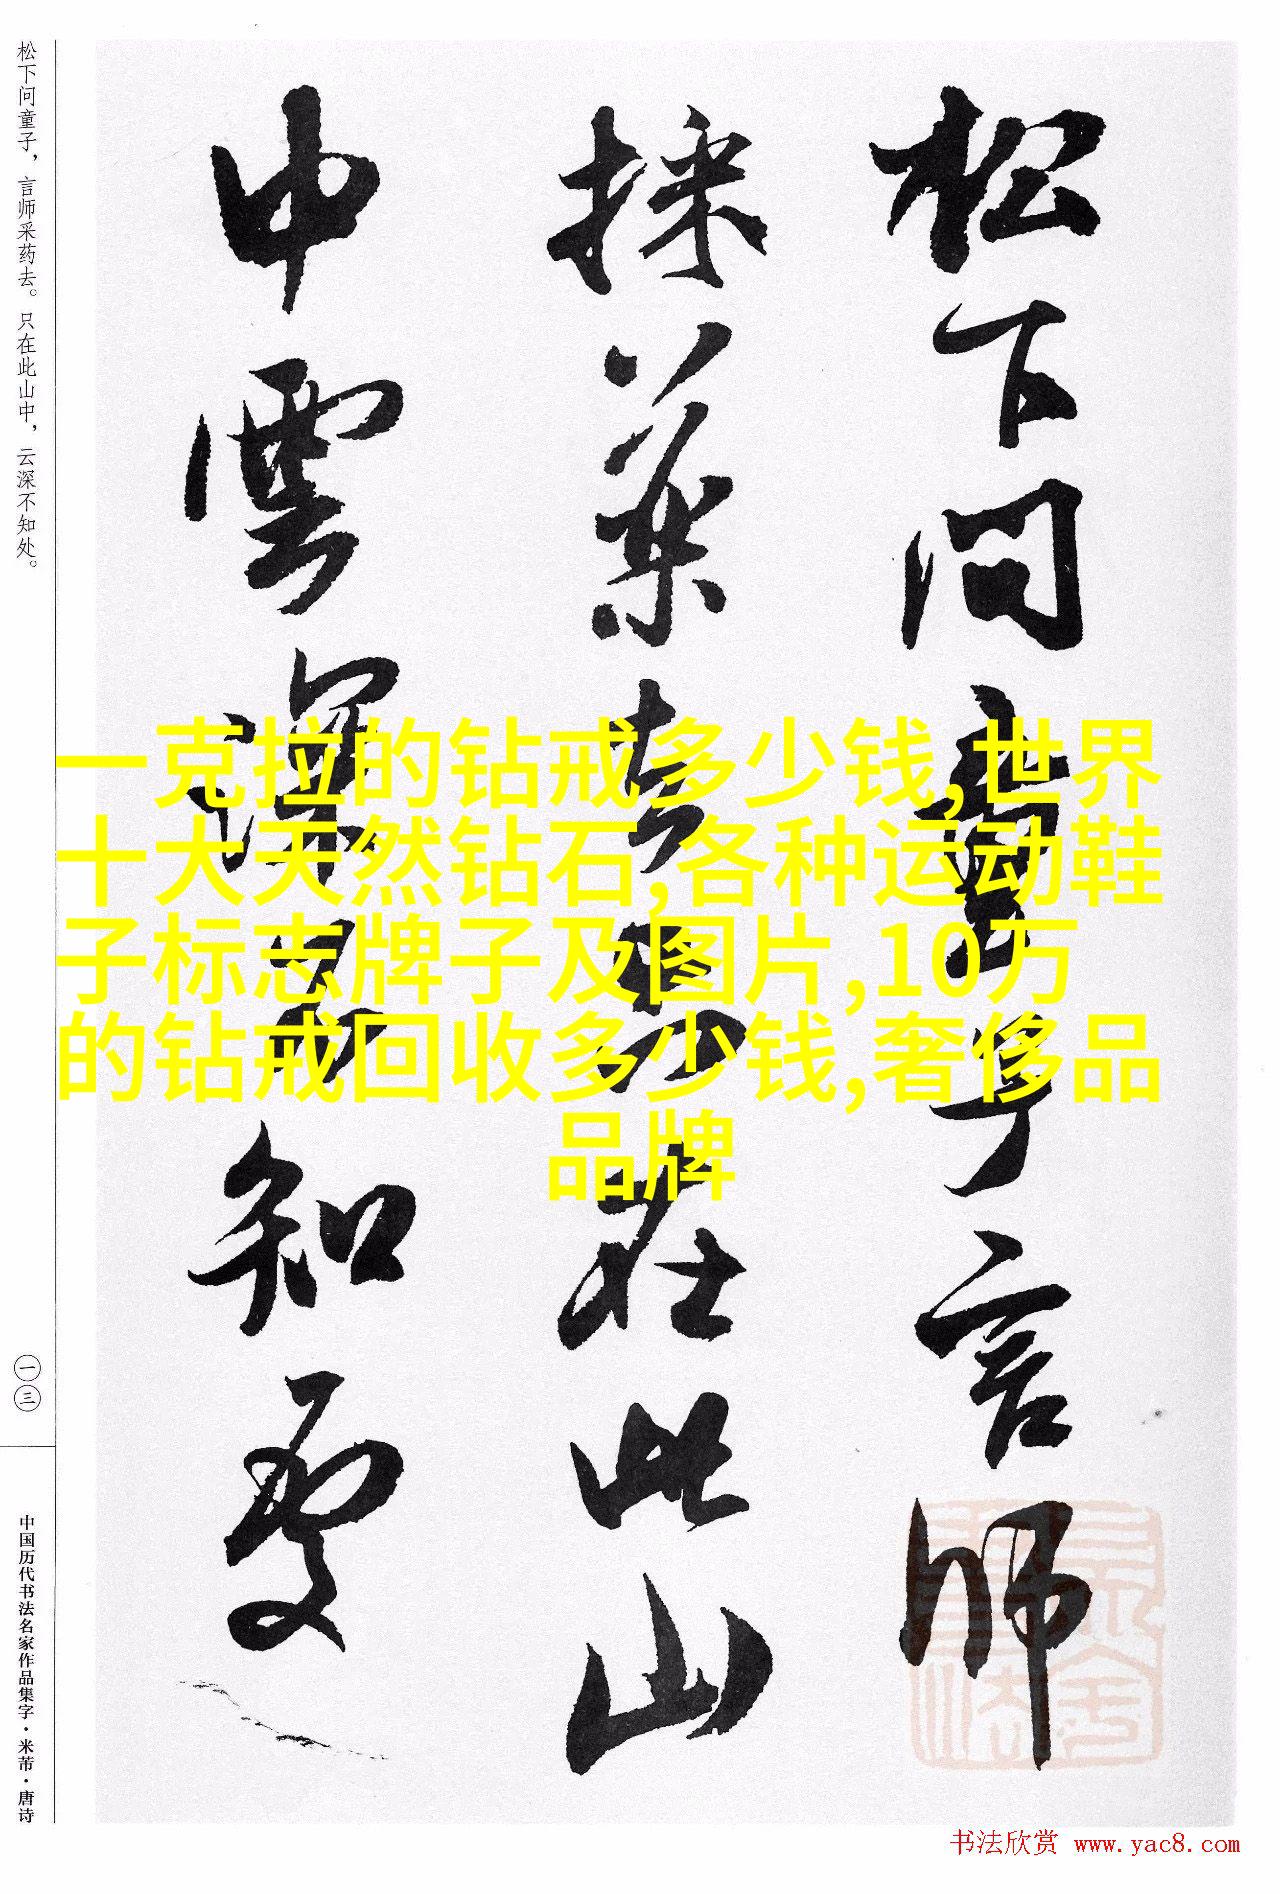 松下问童子，言师采药去。只在此山中，云深不知处。
松下问童子言师
採药去只在此山
中雲深不知處
一克拉的钻戒多少钱,世界
十大天然钻石,各种运动鞋
子标志牌子及图片,10万
的钻戒回收多少钱,奢侈品
品牌
一三
中国历代书法名家作品集字·米芾·唐诗
书法欣赏 www.yac8.com